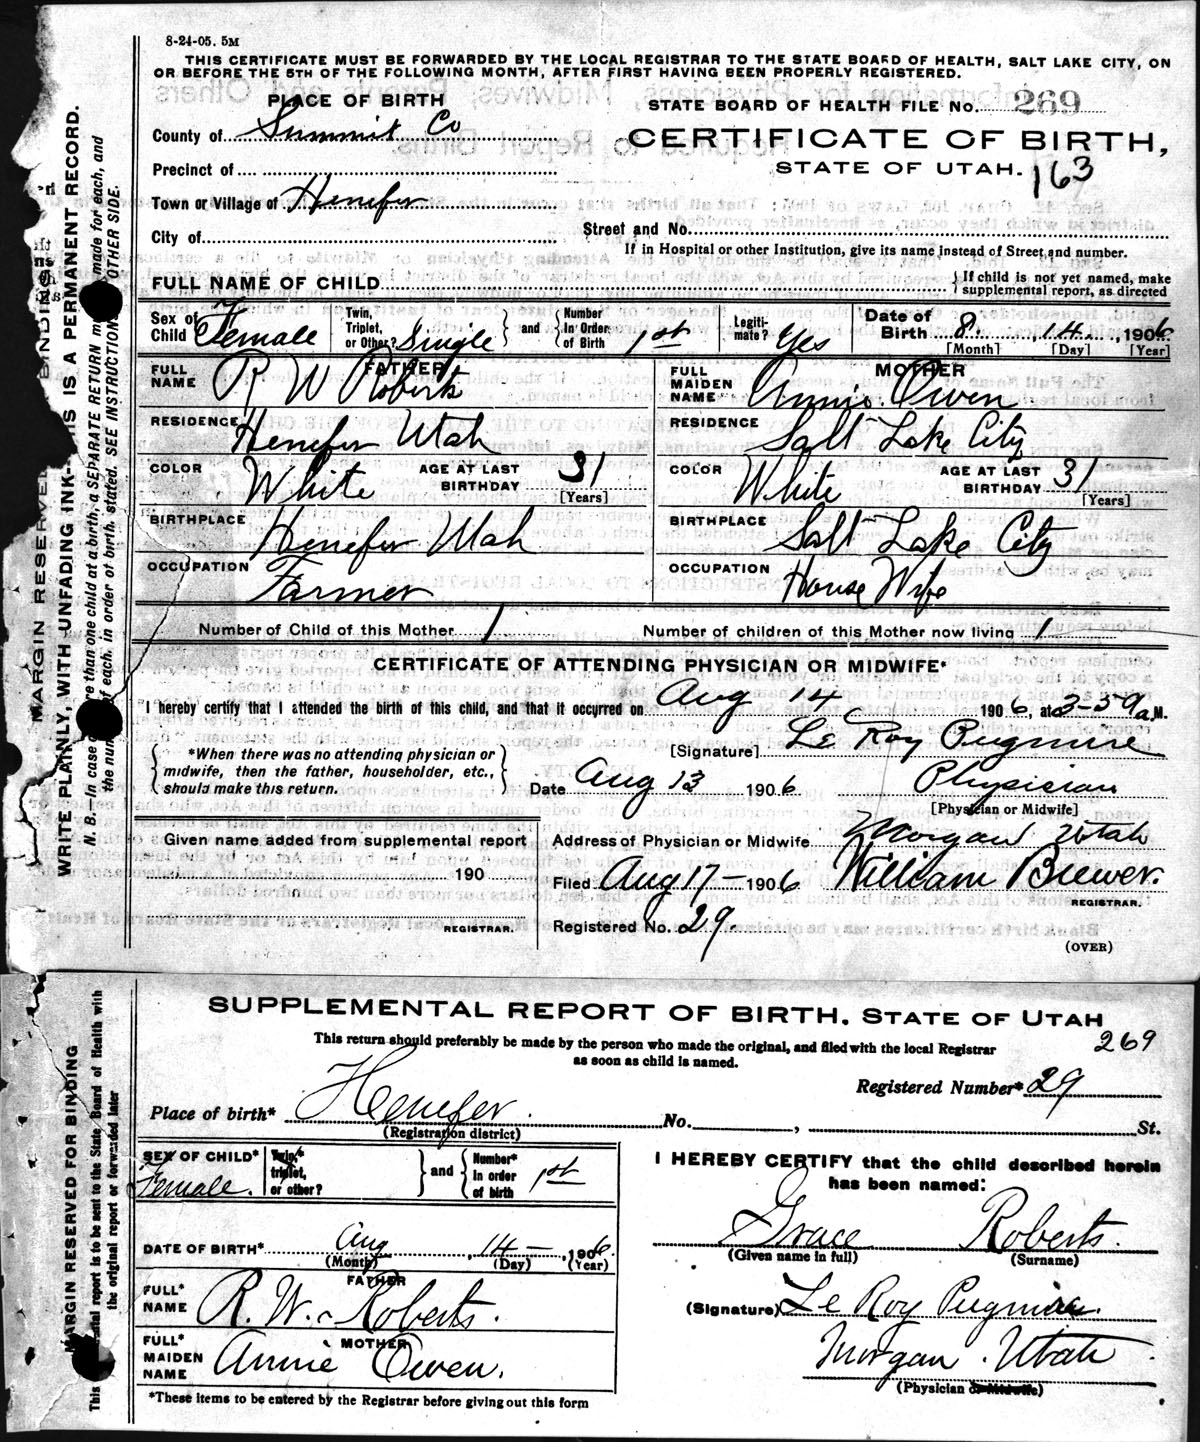 8-24-05. 5M
THIS CERTIFICATE MUST BE FORWARDED BY THE LOCAL REGISTRAR TO THE STATE BOARD OF HEALTH, SALT LAKE CITY, ON
OR BEFORE THE 5TH OF THE FOLLOWING MONTH, AFTER FIRST HAVING BEEN PROPERLY REGISTERED.
PLACE OF BIRTH
STATE BOARD OF HEALTH FILE No. 269
County of Summit Co
CERTIFICATE OF BIRTH,
STATE OF UTAH. 163
Precinct of
Town or Village of Henefer
City of
Street and No.
If in Hospital or other Institution, give its name instead of Street, and number.
FULL NAME OF CHILD
If child is not yet named, make
supplemental report, as directed
Sex of Child Female
Twin, Triplet, or Other? Single
and
Number In Order of Birth 1st
Legiti-mate? Yes
Date of Birth 8. 14. 1906
[Month] [Day] [Year]
FATHER
FULL NAME R W Roberts
RESIDENCE Henefer Utah
COLOR White
AGE AT LAST BIRTHDAY 31
[Years]
BIRTHPLACE Henefer Utah
OCCUPATION Farmer
MOTHER
FULL MAIDEN NAME Annie Owen
RESIDENCE Salt Lake City
COLOR White
AGE AT LAST BIRTHDAY 31
[Years]
BIRTHPLACE Salt Lake City
OCCUPATION House Wife
Number of Child of this Mother 1
Number of children of this Mother now living 1
CERTIFICATE OF ATTENDING PHYSICIAN OR MIDWIFE*
I hereby certify that I attended the birth of this child, and that it occurred on Aug 14 1906, at 3-59 a.M.
*When there was no attending physician or
midwife, then the father, householder, etc.,
should make this return.
[Signature] Le Roy Pugmire
Date Aug 13 1906 Physician
[Physician or Midwife]
Given name added from supplemental report
190
REGISTRAR.
Address of Physician or Midwife Morgan Utah
Filed Aug 17 - 1906 William Brewer.
REGISTRAR.
Registered No. 29.
(OVER)
MARGIN RESERVED BINDING
WRITE PLAINLY, WITH UNFADING INK--THIS IS A PERMANENT RECORD.
N. B. In case more than one child at a birth, a SEPARATE RETURN must be made for each, and
the number of each, in order of birth, stated. SEE INSTRUCTIONS OTHER SIDE.
SUPPLEMENTAL REPORT OF BIRTH. STATE OF UTAH
269
This return should preferably be made by the person who made the original, and filed with the local Registrar
as soon as child is named.
Registered Number* 29
Place of birth* Henefer. No. , St.
(Registration district)
SEX OF CHILD* Female.
Twin,* triplet, or other?
and
Number* in order of birth 1st
DATE OF BIRTH* Aug , 14 - , 1906
(Month) (Day) (Year)
FATHER
FULL* NAME R. W. Roberts.
MOTHER
FULL* MAIDEN NAME Annie Owen.
*These items to be entered by the Registrar before giving out this form
I HEREBY CERTIFY that the child described herein
has been named:
Grace Roberts.
(Given name in full) (Surname)
(Signature) Le Roy Pugmire.
Morgan. Utah.
(Physician or Midwife)
MARGIN RESERVED FOR BINDING
This report is to be sent to the State Board of Health with
the original report or forwarded later